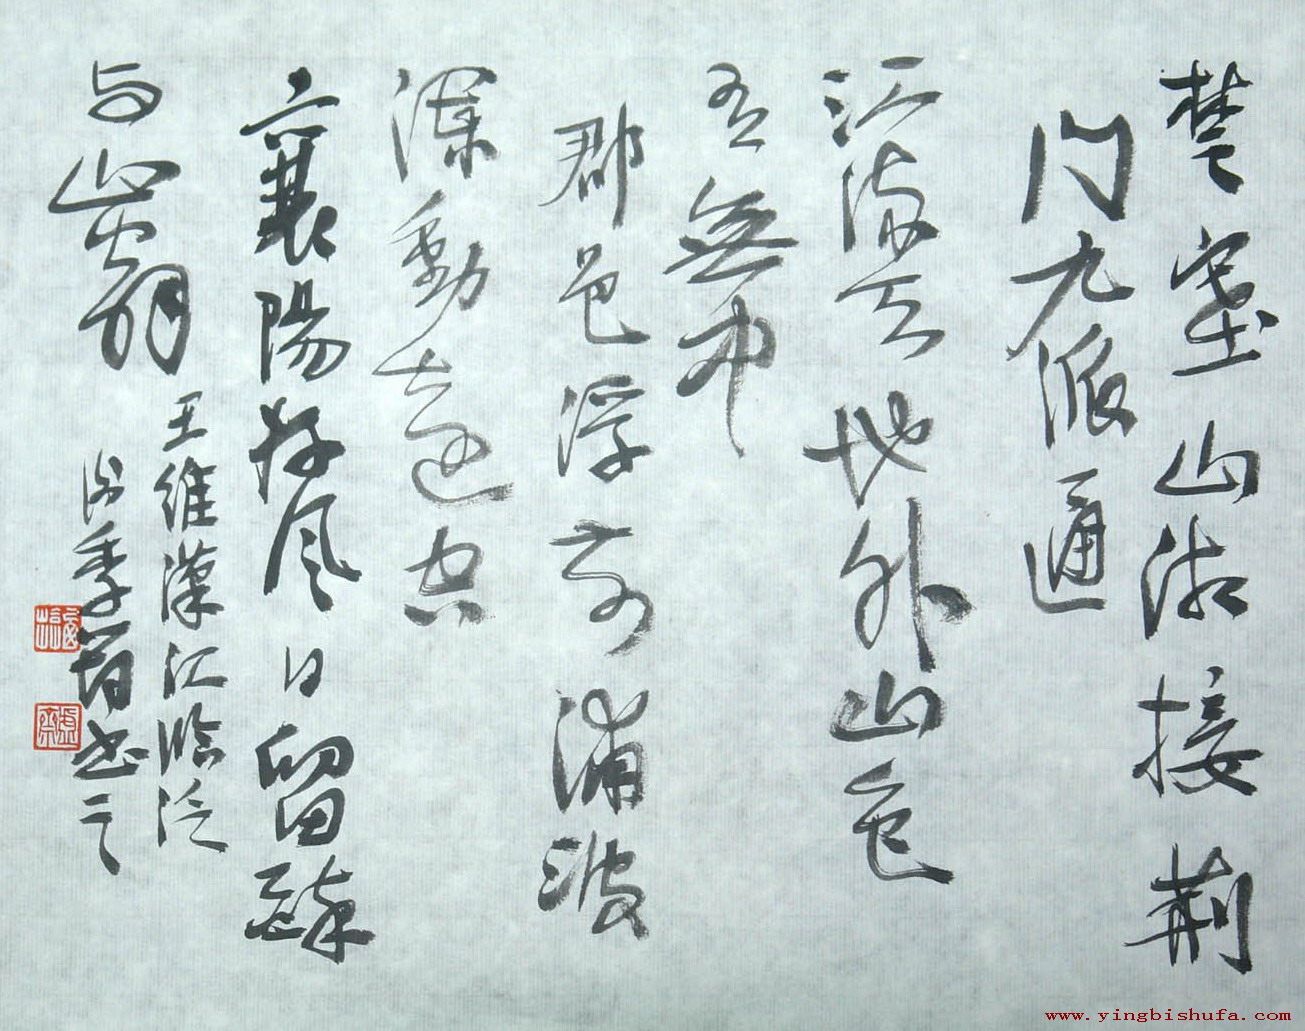 楚塞山湘接荆
门九派通
江流天地外山色
有無中
郡邑浮前浦波
瀾動遠空
襄陽好风日留醉
与山翁
王維漢江臨泛
季书之
www.yingbishufa.com